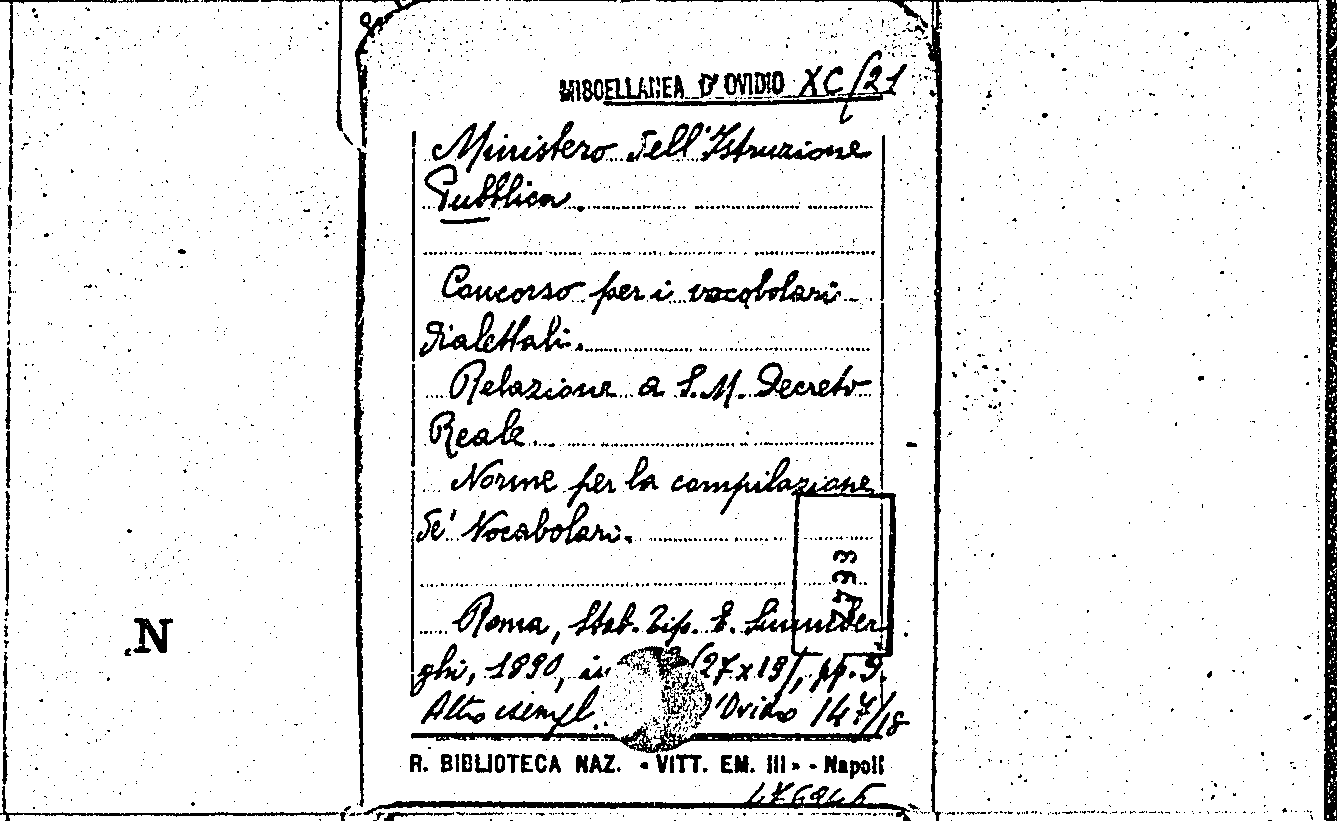 MISCELLANEA D'OVIDIO XC/21
Ministero dell'Istruzione
Pubblica.
Concorso per i vocabolari
dialettali.
Relazione a S. M. Decreto
Reale.
Norme per la compilazione
de' Vocabolari.
7793
Roma, Stab. Tip. E. Sinimber
ghi, 1890, in (27x19), pp. 9.
Altro esempl. Ovidio 147/18
R. BIBLIOTECA NAZ. « VITT. EM. III » - Napoli
N